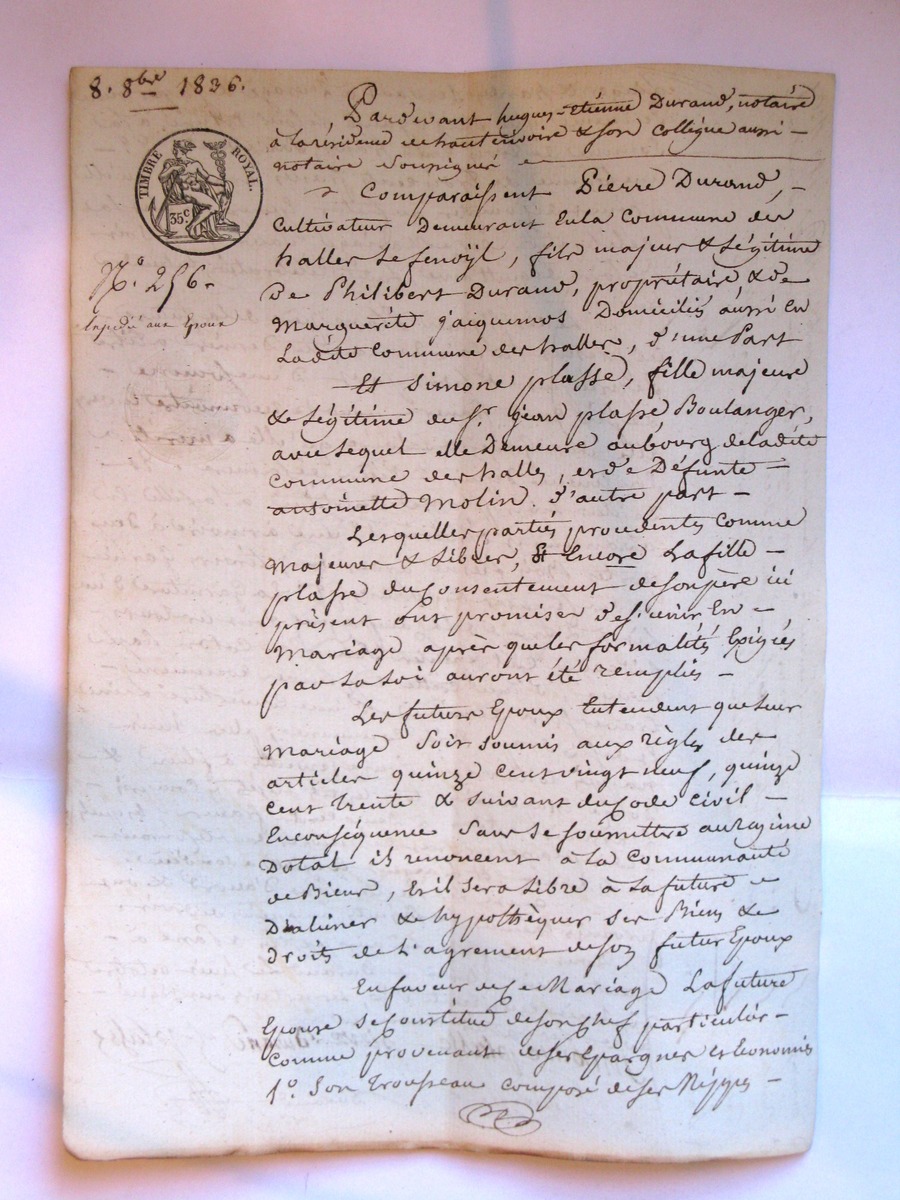 8. 8bre 1836.
Pardevant hugues-étienne Durand, notaire
à la résidence de hauterivoire & son collègue aussi
notaire soussigné
TIMBRE ROYAL.
35c
Comparaissent Pierre Durand,
Cultivateur Demeurant En la Commune des
halles Le fenoÿl, fils majeur & Légitime
De Philibert Durand, propriétaire, & de
N.o 256.
Expédié aux Epoux
Marguerite j'aiguemos Domiciliés aussi En
Ladite Commune des halles, d'une Part
Et Simone plasse, fille majeure
& Légitime du Sr. jean plasse, Boulanger,
avec Lequel elle Demeure au bourg de ladite
Commune des halles, et de Défunte
antoinette Molin. d'autre part
Lesquelles parties procedentes comme
Majeures & Libres, & Encore La fille
plasse du Consentement de son père ici
présent ont promises de s'unir En
Mariage après que les formalités Exigées
par La Loi auront été remplies
Les futurs Epoux Entendent que Leur
Mariage Soit soumis aux règles des
articles quinze cent vingt neuf, quinze
cent trente & suivant du Code Civil
En conséquence Sans se soumettre au Régime
Dotal ils renoncent à la Communauté
de Biens, Et il sera Libre à La future
D'aliéner & hypothéquer ses Biens &
Droits de L'agrément de son futur Epoux
En faveur de Ce Mariage La future
Epouse se Constitue de son Chef particulier
Comme provenant de ses Epargnes et Economies
1o. Son Trousseau composé de ses Nippes